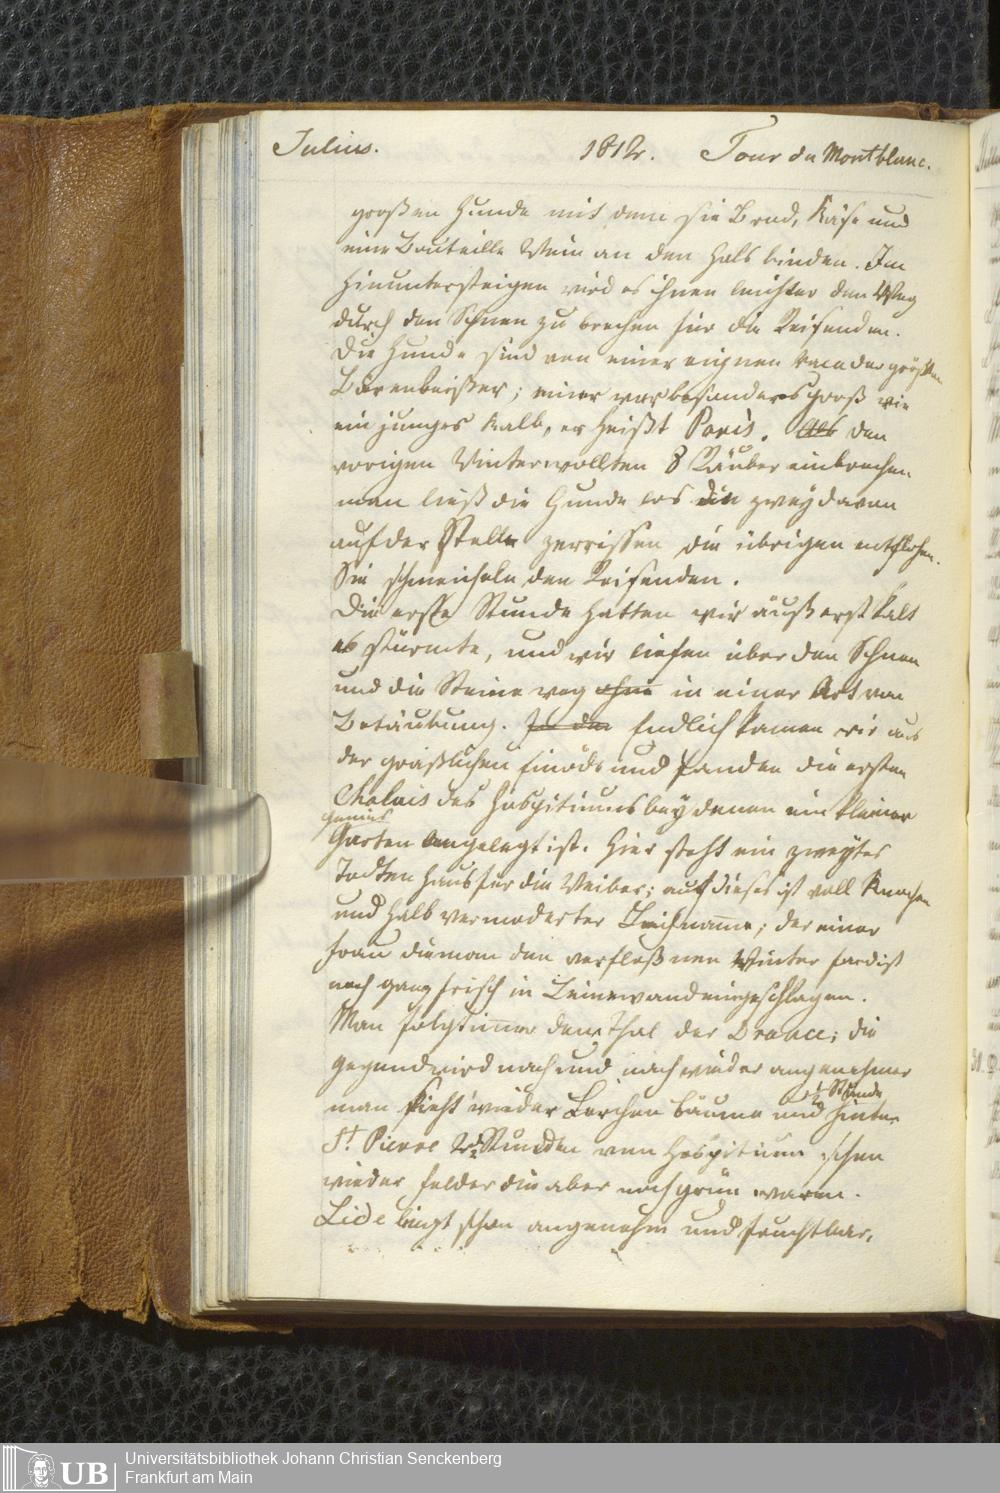 Julius. 1812. Tour du Montblanc.
großen Hunde mit dem sie Brod, Käse und
eine Bouteille Wein an den Hals binden. Im
hinuntersteigen wird es ihnen leichter den Weg
durch den Schnee zu brechen für die Reisenden.
Die Hunde sind von einer eignen Race der größten
Bärenbeißer; einer war besonders groß wie
ein junges Kalb, er heißt Paris. Als den
vorigen Winter wollten 8 Räuber einbrechen
man ließ die Hunde los die zwey davon
auf der Stelle zerrissen die übrigen entflohen.
Sie schmeicheln den Reisenden.
Die erste Stunde hatten wir äußerst kalt
es stürmte, und wir liefen über den Schnee
und die Steine weg ohne in einer Art von
Betäubung. In der Endlich kamen wir aus
der gräßlichen Einöde und fanden die ersten
Chalais des Hospitiums bey denen ein kleiner
gemüs
Garten angelegt ist. Hier steht ein zweytes
Todten Haus für die Weiber; auch dieses ist voll Knochen
und halb vermoderter Leichname; der einer
Frau die man den verfloßnen Winter fand ist
noch ganz frisch in Leinewand eingeschlagen.
Man folgt immer dem Thal der Drance; die
gegend wird nach und nach wieder angenehmer
man sieht wieder Lerchen bäume und hinter
½ Stunde
St. Pierre Stunden vom Hospitium schon
wieder felder die aber noch grün waren.
Lide liegt schon angenehm und fruchtbar,
Universitätsbibliothek Johann Christian Senckenberg
Frankfurt am Main
UB